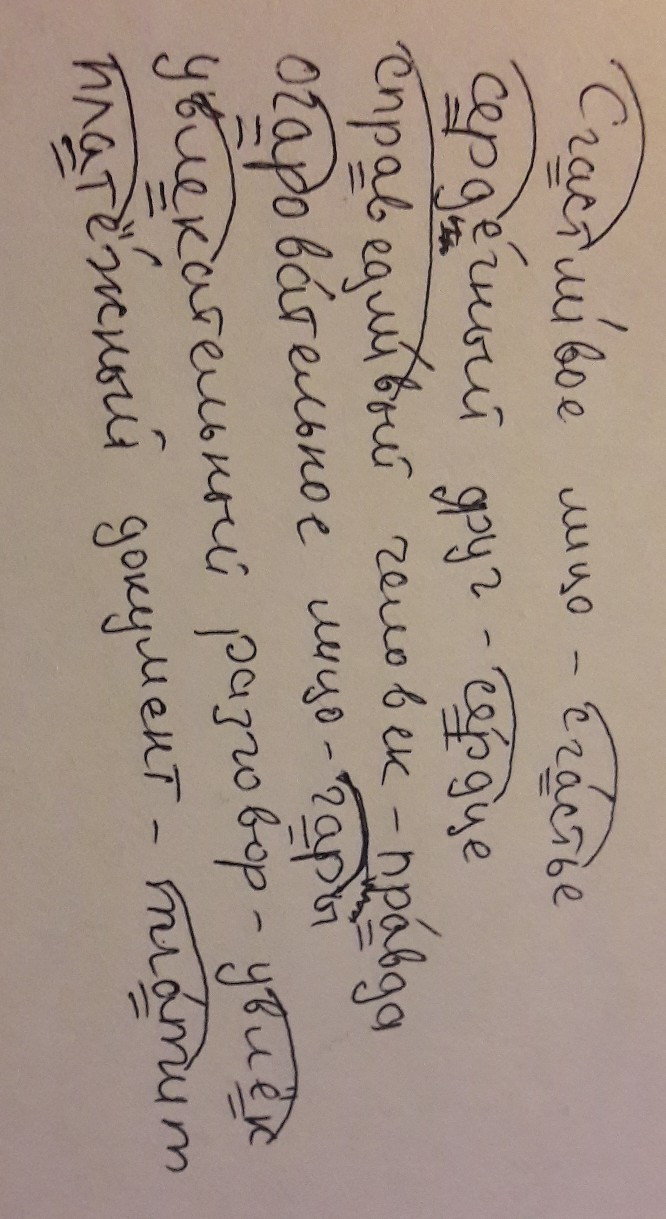 Счастли́вое лицо - сча́стье
серде́чный друг - се́рдце
справедли́вый человек - пра́вда
очарова́тельное лицо - чары
увлекательный разговор - увлёк
платёжный документ - пла́тит